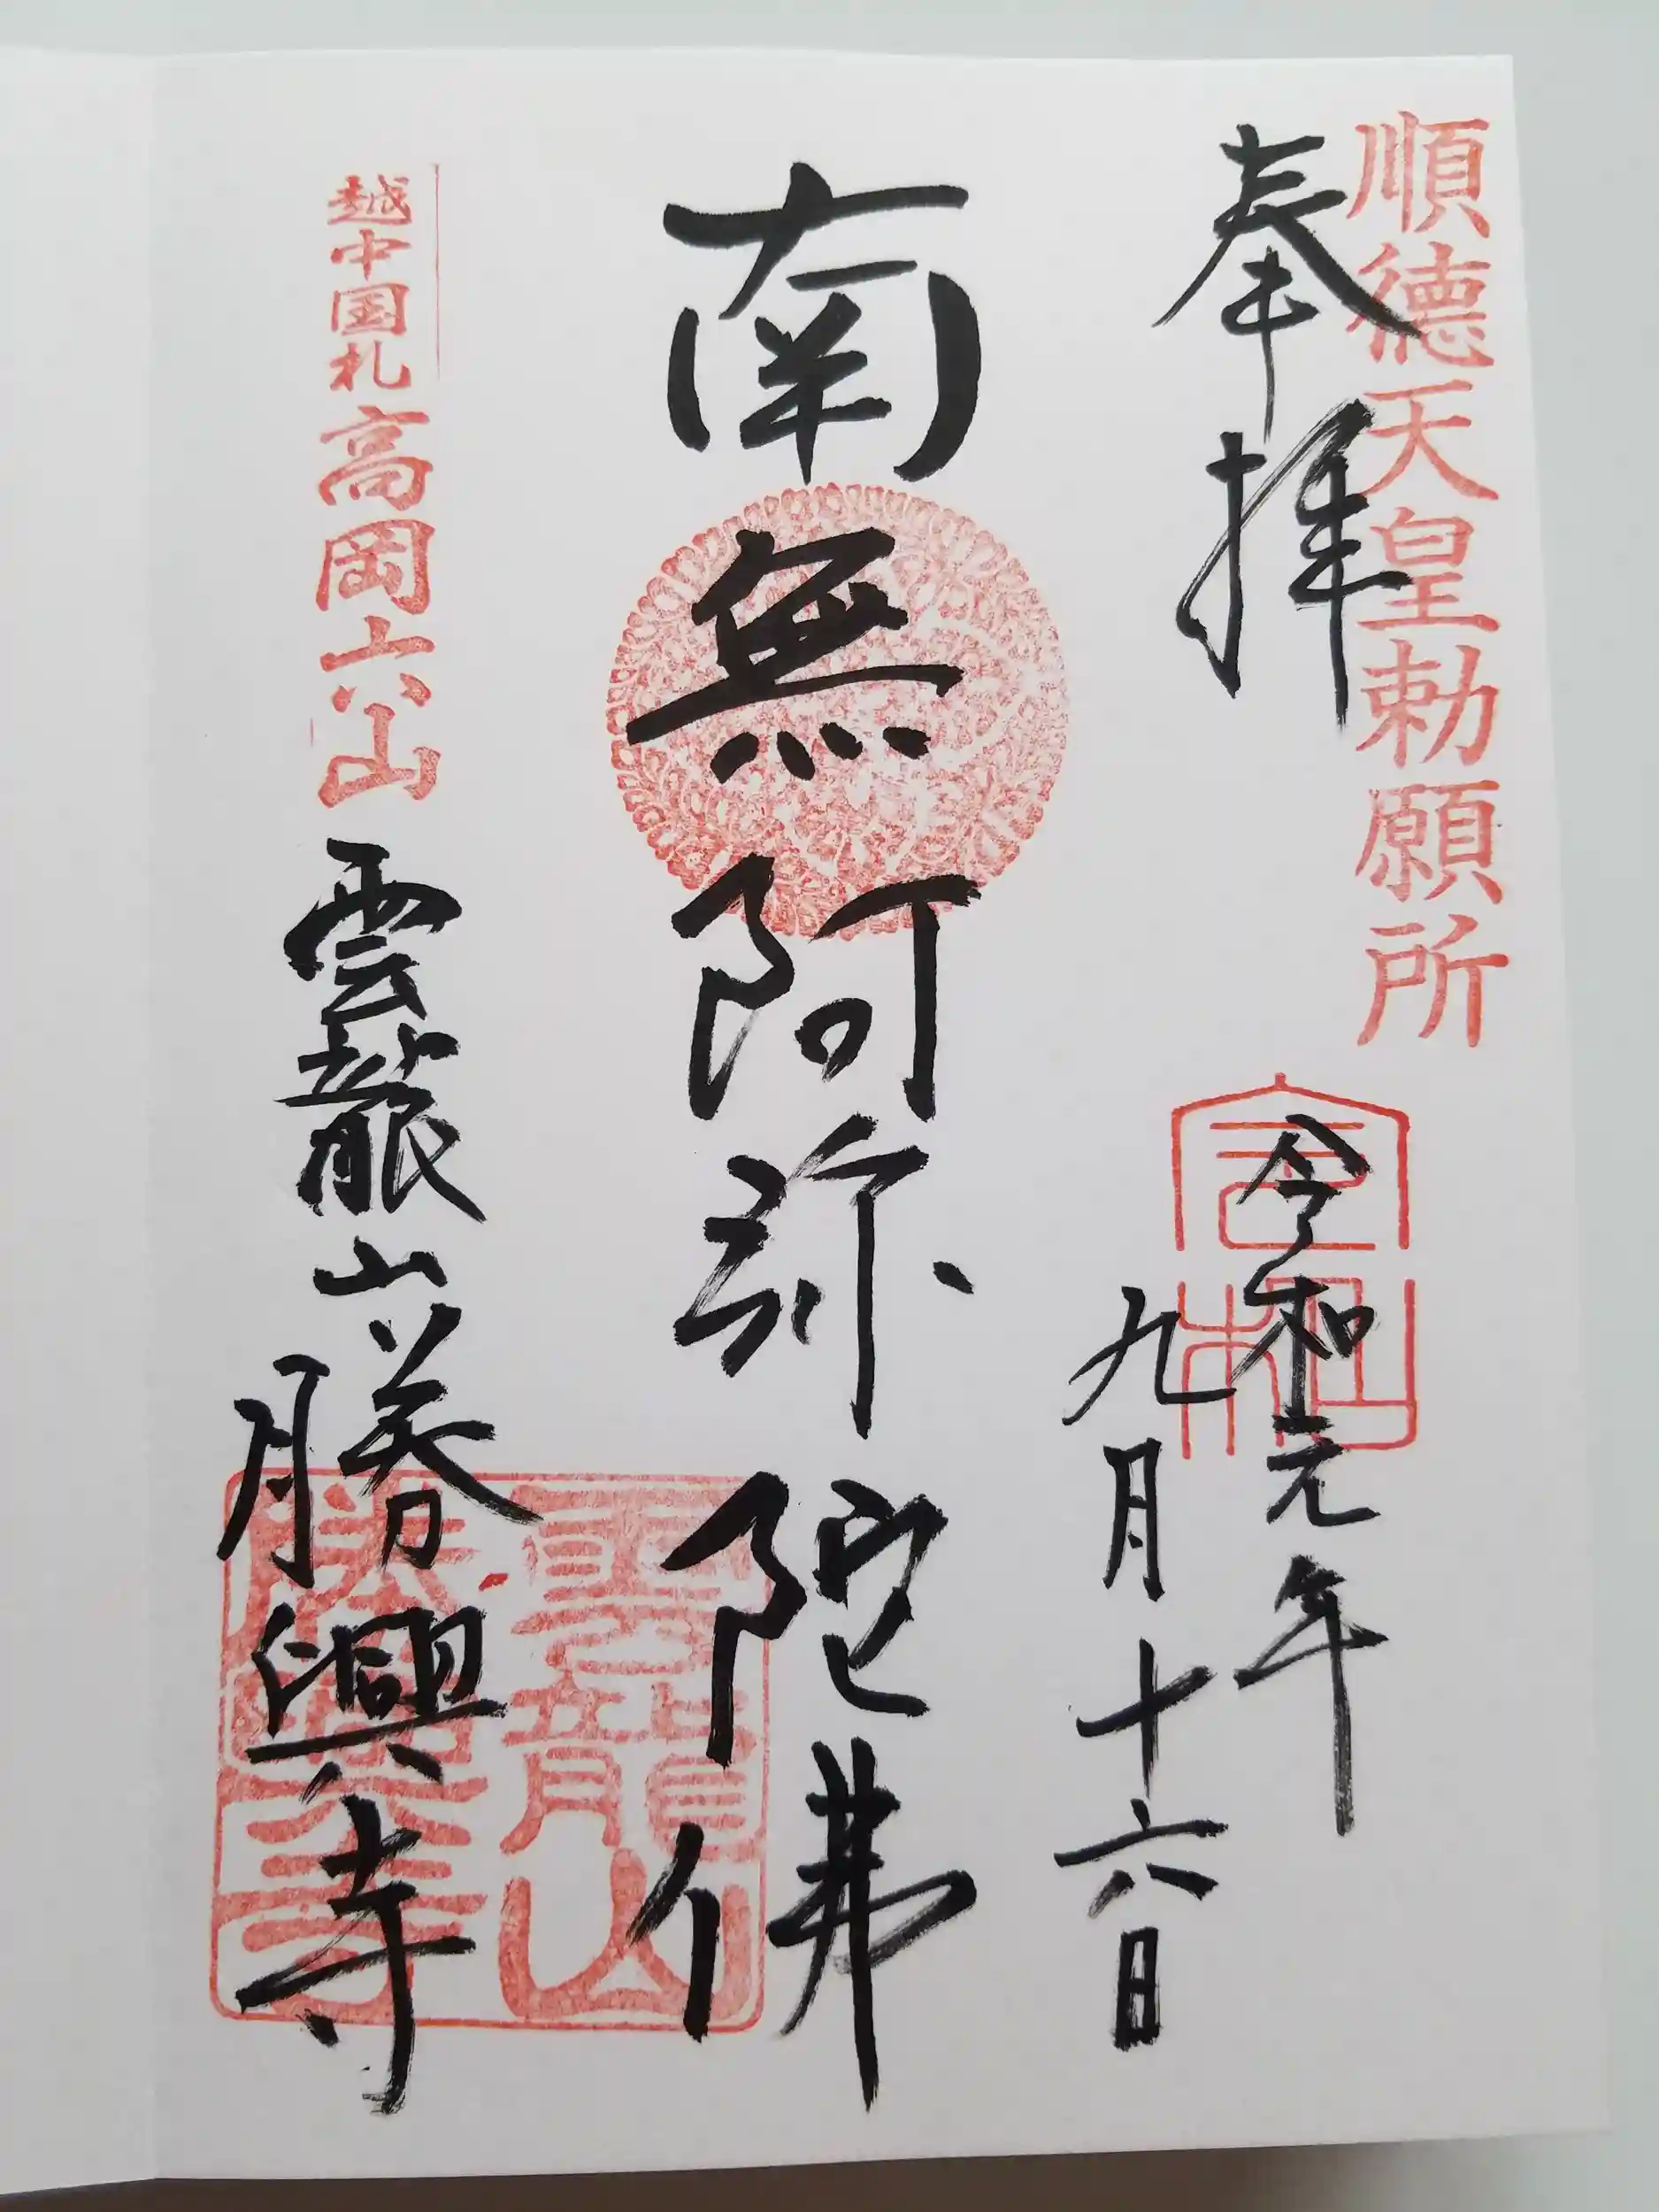 順徳天皇勅願所
奉拝
令和元年
九月十六日
南無阿弥陀佛
越中国札
高岡六山
雲龍山勝興寺
雲龍山
勝興寺